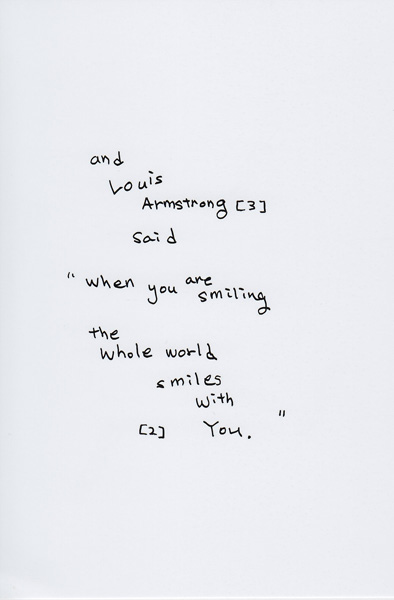 and
Louis
Armstrong [3]
said
"when you are
smiling
the
whole world
smiles
with
[2] You."